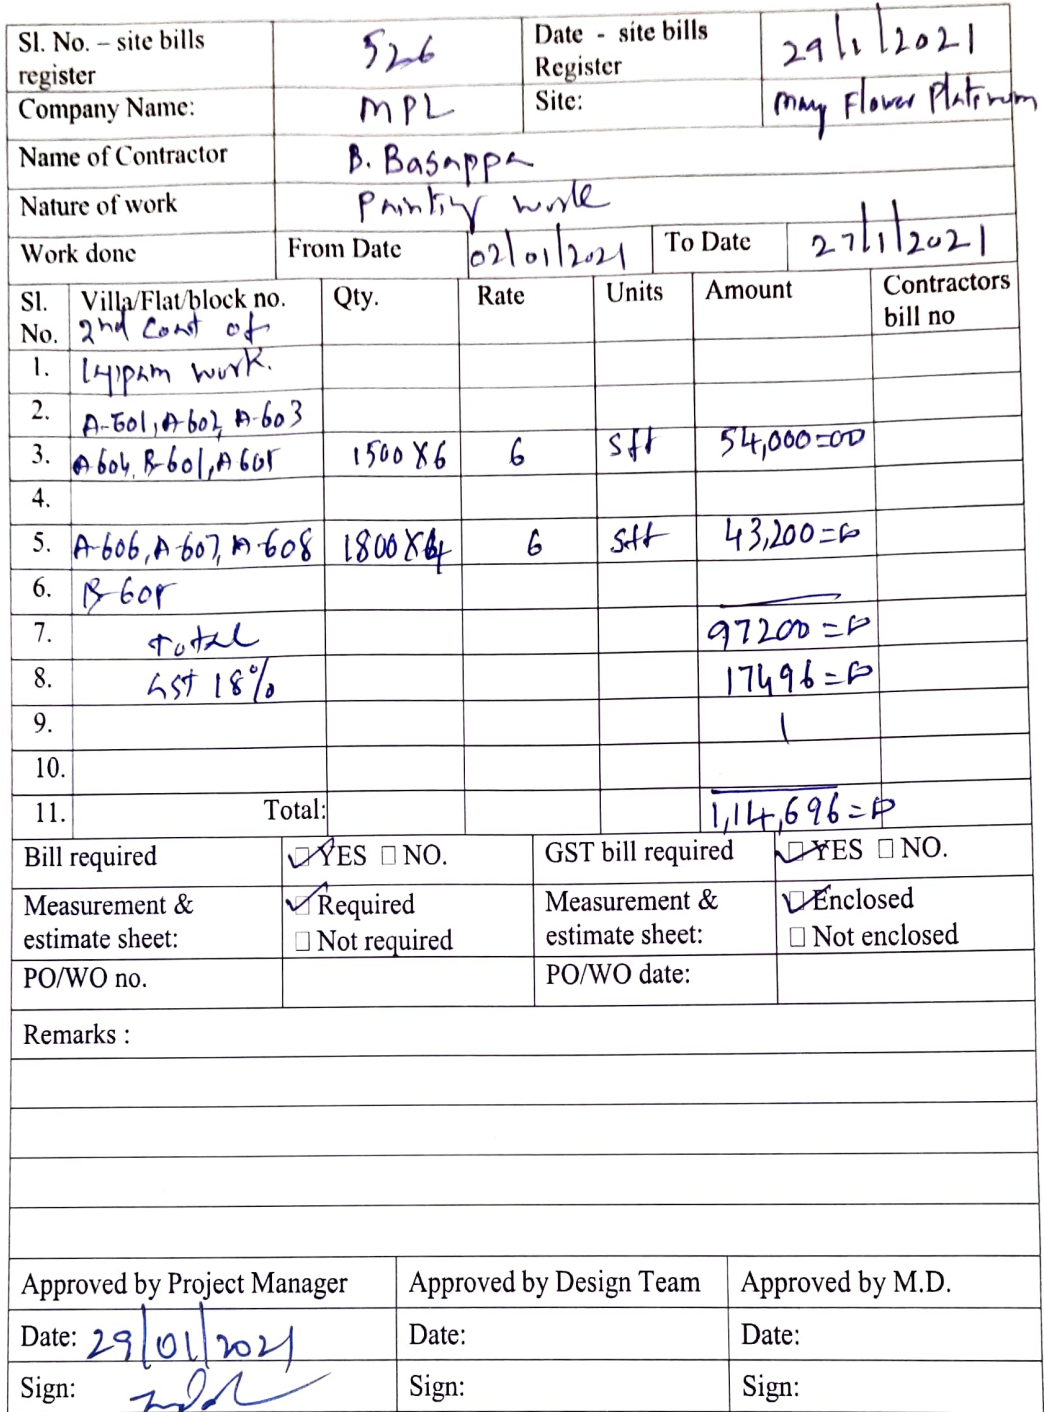 Sl. No. – site bills register 526 Date - site bills Register 29/1/2021
Company Name: MPL Site: May Flower Platinum
Name of Contractor B. Basappa
Nature of work Painting work
Work done From Date 02/01/2021 To Date 27/1/2021
Sl. No. Villa/Flat/block no. Qty. Rate Units Amount Contractors bill no
2nd Coat of
1. lappam work.
2. A-601, A-602, A-603
3. A604, B-601, A605 1500 X6 6 sft 54,000=00
4.
5. A-606, A-607, A-608 1800 X 4 6 sft 43,200=00
6. B-605
7. Total 97200=00
8. GST 18% 17496=00
9.
10.
11. Total: 1,14,696=00
Bill required ☑ YES □ NO. GST bill required ☑ YES □ NO.
Measurement & estimate sheet: ☑ Required Measurement & estimate sheet: ☑ Enclosed
□ Not required □ Not enclosed
PO/WO no. PO/WO date:
Remarks :
Approved by Project Manager Approved by Design Team Approved by M.D.
Date: 29/01/2021 Date: Date:
Sign: Sign: Sign: